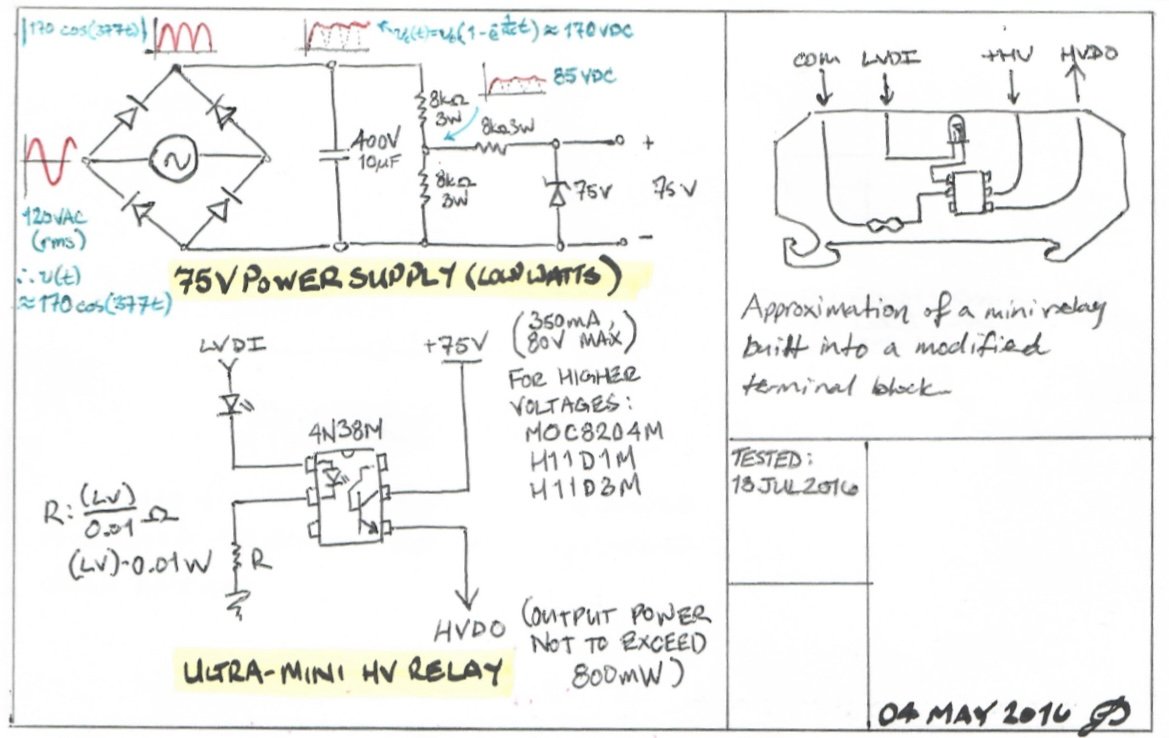 |170 cos(377t)|
v_t(t)=v_t(1-e^{-\frac{1}{RC}t}) ≈ 170VDC
85 VDC
8kΩ
3W
8kΩ3W
400V
10µF
8kΩ
3W
75V
+
75V
-
120VAC
(rms)
∴ v(t)
≈170 cos(377t)
75V POWER SUPPLY (LOW WATTS)
LVDI
+75V
(350mA,
80V MAX)
FOR HIGHER
VOLTAGES:
MOC8204M
H11D1M
H11D3M
4N38M
R: (LV)/0.01 Ω
(LV)·0.01W
R
HVDO
(OUTPUT POWER
NOT TO EXCEED
800mW)
ULTRA-MINI HV RELAY
COM LVDI +HV HVDO
Approximation of a mini relay
built into a modified
terminal block.
TESTED:
13 JUL 2016
04 MAY 2016